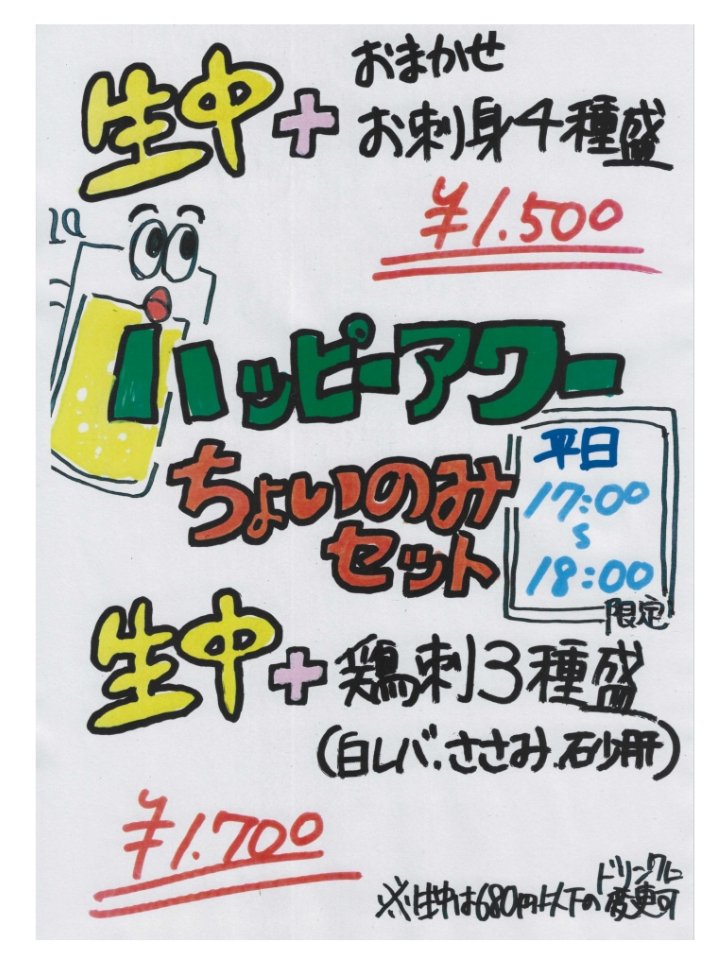 生中+おまかせ
お刺身4種盛
¥1.500
ハッピーアワー
ちょいのみ
セット
平日
17:00
~
18:00
限定
生中+鶏刺3種盛
(白レバ.ささみ.砂肝)
¥1.700
※生中は680円以下のドリンクに
変更可